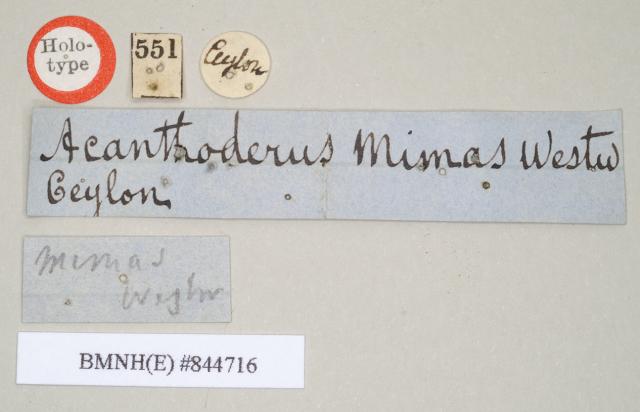 Holo-
type
551
Ceylon
Acanthoderus Mimas Westw
Ceylon.
Mimas
Westw
BMNH(E) #844716